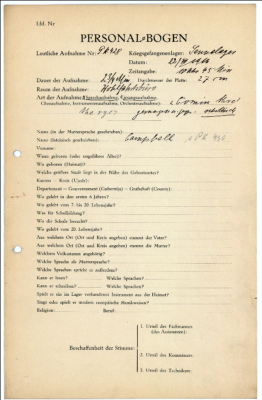 Lfd. Nr
PERSONAL=BOGEN
Lautliche Aufnahme Nr. PK 428 Kriegsgefangenenlager: Sennelager
Datum:
Zeitangabe: 10 Uhr 45 Min
Dauer der Aufnahme: Durchmesser der Platte: 27 cm
Raum der Aufnahme:
Art der Aufnahme (Sprechaufnahme, Gesangsaufnahme,
Choraufnahme, Instrumentenaufnahme, Orchesteraufnahme):
Name (in der Muttersprache geschrieben):
Name (lateinisch geschrieben): Campbell
Vorname:
Wann geboren (oder ungefähres Alter)?
Wo geboren (Heimat)?
Welche größere Stadt liegt in der Nähe des Geburtsortes?
Kanton – Kreis (Ujezd):
Departement – Gouvernement (Gubernija) – Grafschaft (County):
Wo gelebt in den ersten 6 Jahren?
Wo gelebt vom 7. bis 20. Lebensjahr?
Was für Schulbildung?
Wo die Schule besucht?
Wo gelebt vom 20. Lebensjahr?
Aus welchem Ort (Ort und Kreis angeben) stammt der Vater?
Aus welchem Ort (Ort und Kreis angeben) stammt die Mutter?
Welchem Volksstamm angehörig?
Welche Sprache als Muttersprache?
Welche Sprachen spricht er außerdem?
Kann er lesen? Welche Sprachen?
Kann er schreiben? Welche Sprachen?
Spielt er ein im Lager vorhandenes Instrument aus der Heimat?
Singt oder spielt er modern europäische Musikweisen?
Religion: Beruf:
Beschaffenheit der Stimme:
1. Urteil des Fachmannes
(des Assistenten):
2. Urteil des Kommissars:
3. Urteil des Technikers: